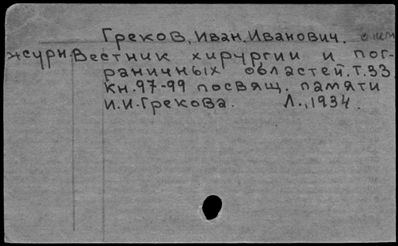 Греков, Иван Иванович.
журн. Вестник хирургии и пог-
раничных областей. Т.33
кн. 97-99 посвящ. памяти
И.И.Грекова. Л., 1934.